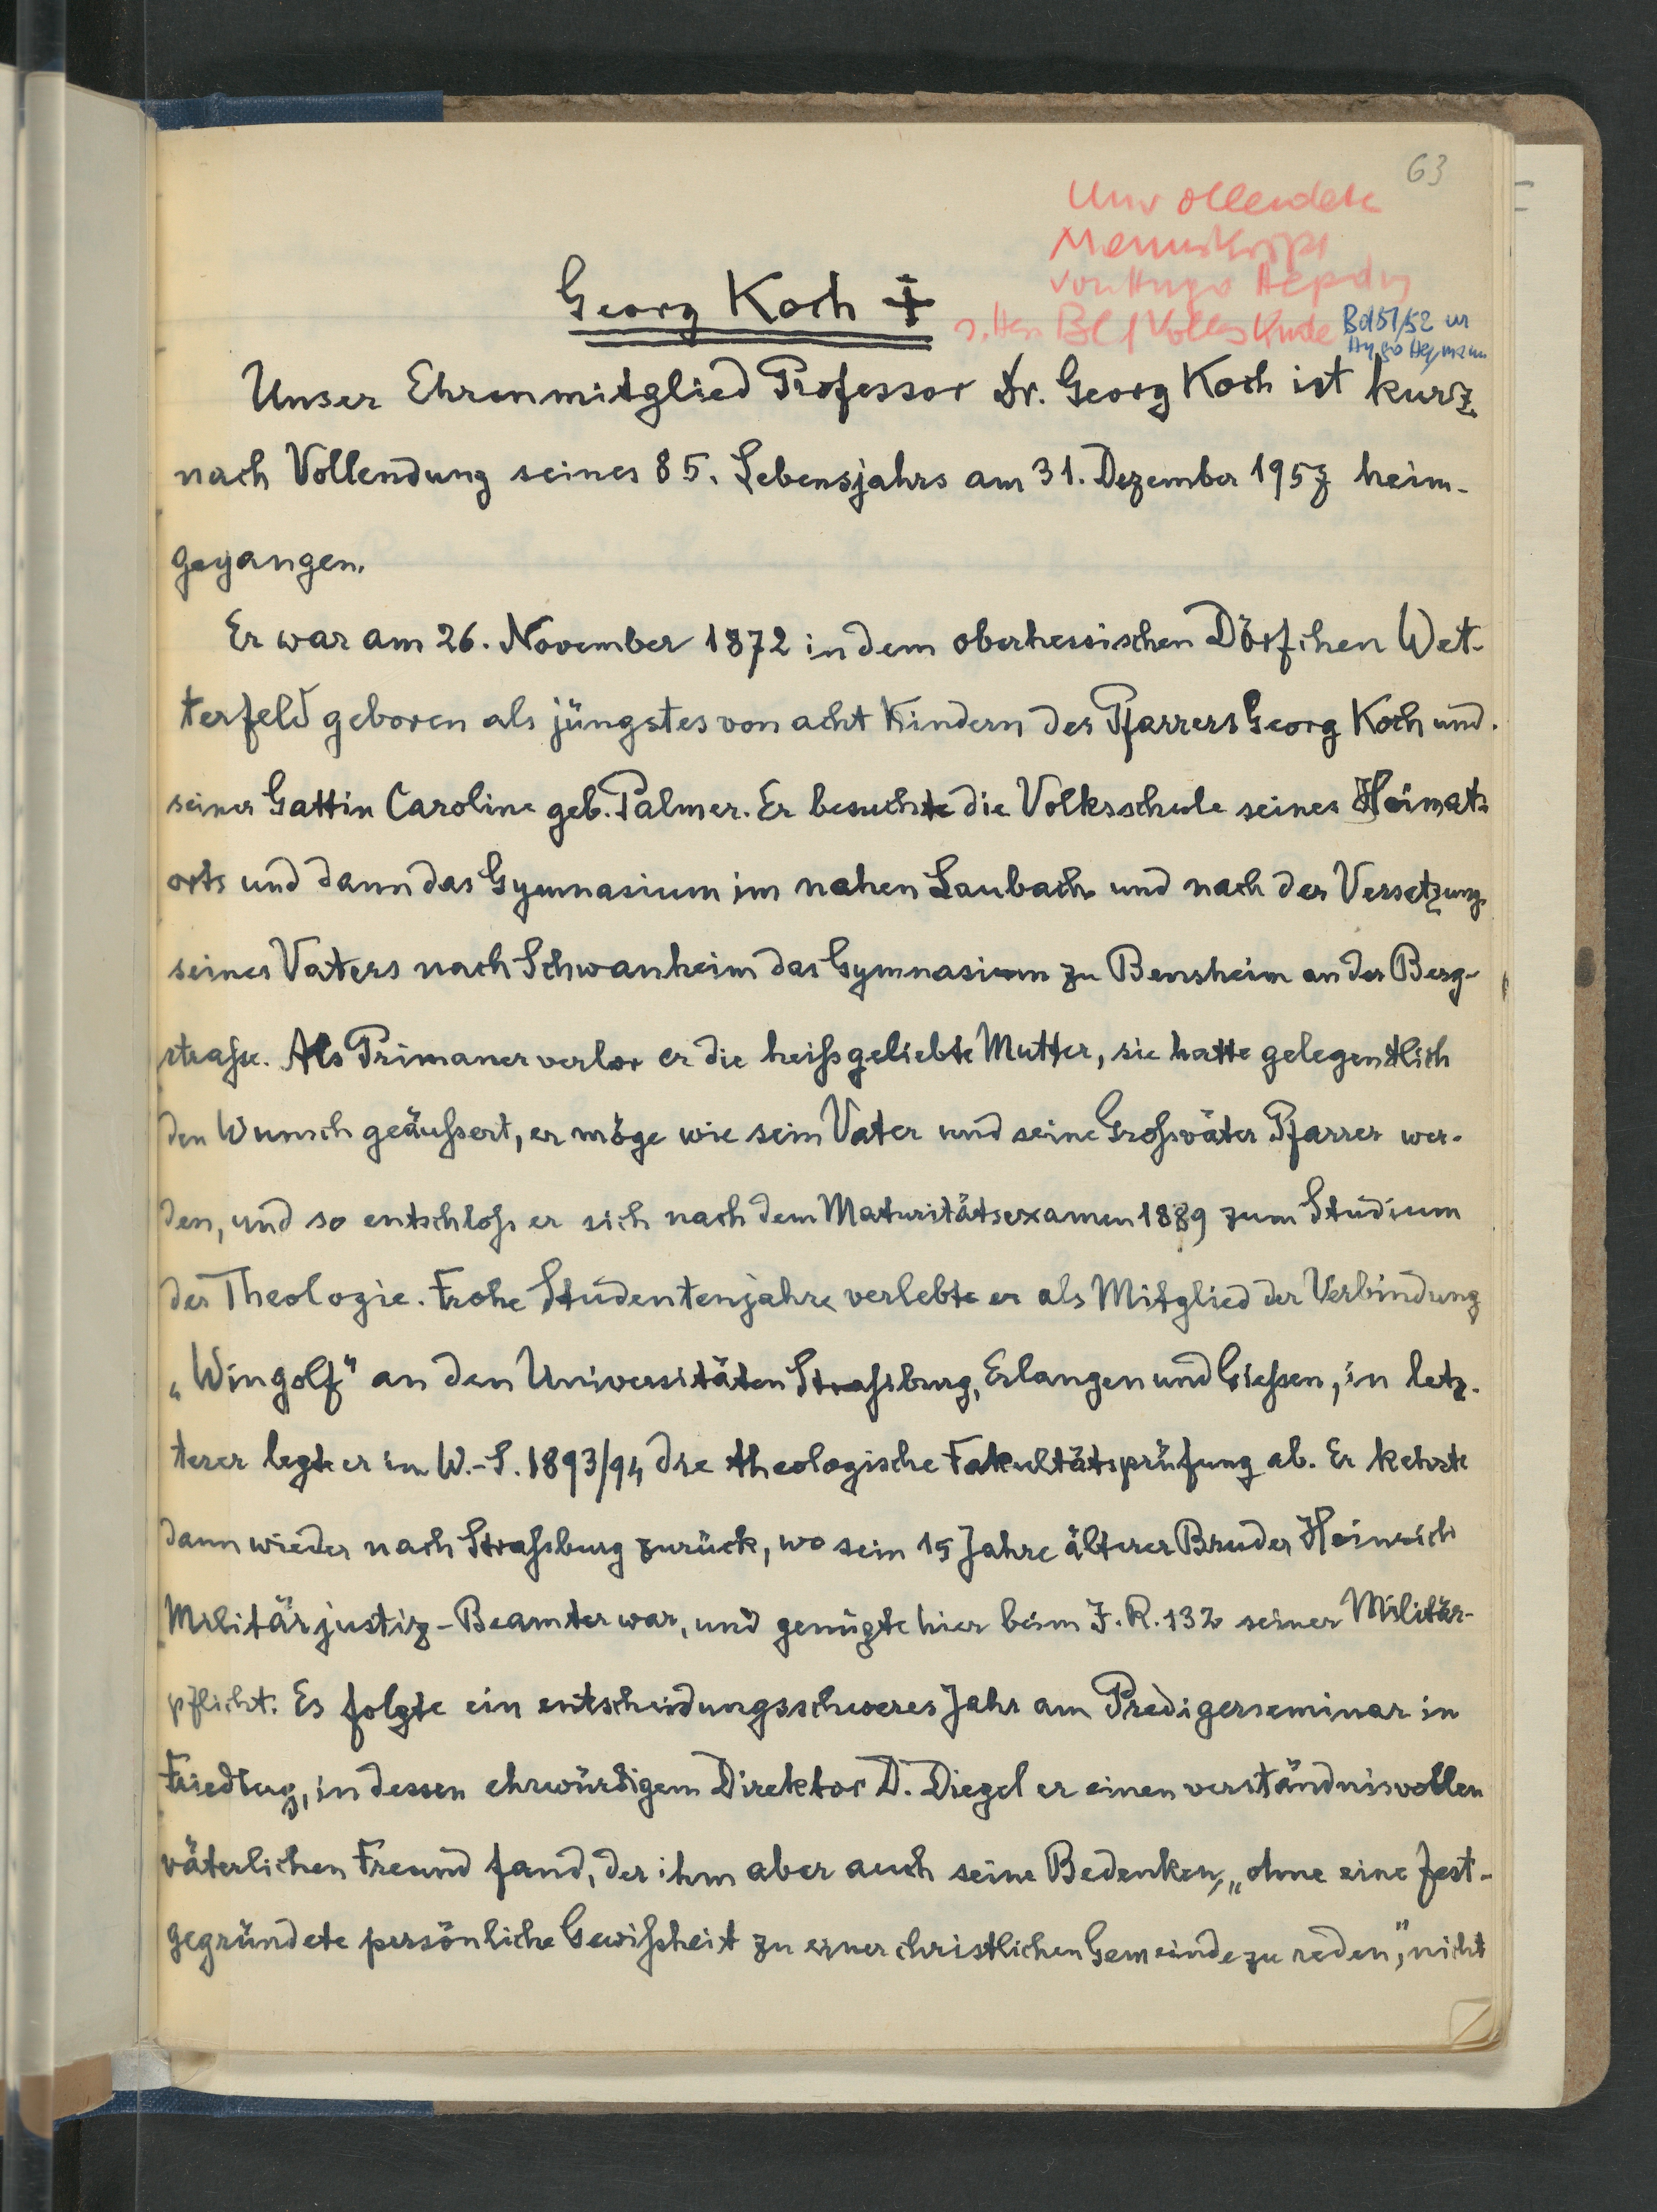 63
Unvollendete
Manuskript
von Hugo Hepding
s. Hess Bl f Volkskunde Bd 51/52 
Hugo
Georg Koch †
Unser Ehrenmitglied Professor Dr. Georg Koch ist kurz
nach Vollendung seines 85. Lebensjahrs am 31. Dezember 1957 heim-
gegangen.
Er war am 26. November 1872 in dem oberhessischen Dörfchen Wet-
terfeld geboren als jüngstes von acht Kindern des Pfarrers Georg Koch und
seiner Gattin Caroline geb. Palmer. Er besuchte die Volksschule seines Heimat-
orts und dann das Gymnasium im nahen Laubach und nach der Versetzung
seines Vaters nach Schwanheim das Gymnasium zu Bensheim an der Berg-
straße. Als Primaner verlor er die heißgeliebte Mutter, sie hatte gelegentlich
den Wunsch geäußert, er möge wie sein Vater und seine Großväter Pfarrer wer-
den, und so entschloß er sich nach dem Maturitätsexamen 1889 zum Studium
der Theologie. Frohe Studentenjahre verlebte er als Mitglied der Verbindung
„Wingolf“ an den Universitäten Straßburg, Erlangen und Gießen, in letz-
terer legte er im W.-S. 1893/94 die theologische Fakultätsprüfung ab. Er kehrte
dann wieder nach Straßburg zurück, wo sein 15 Jahre älterer Bruder Heinrich
Militärjustiz-Beamter war, und genügte hier beim J. R. 132 seiner Militär-
pflicht. Es folgte ein entscheidungsschweres Jahr am Predigerseminar in
Friedberg, in dessen ehrwürdigem Direktor D. Diegel er einen verständnisvollen
väterlichen Freund fand, der ihm aber auch seine Bedenken, „ohne eine fest-
gegründete persönliche Gewißheit zu einer christlichen Gemeinde zu reden“, nicht